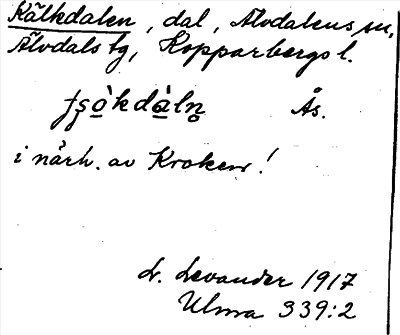 Kälkdalen, dal, Älvdalens sn,
Älvdals tg, Kopparbergs l.
Ås.
i närh. av Kroken!
L. Levander 1917
Ulma 339:2